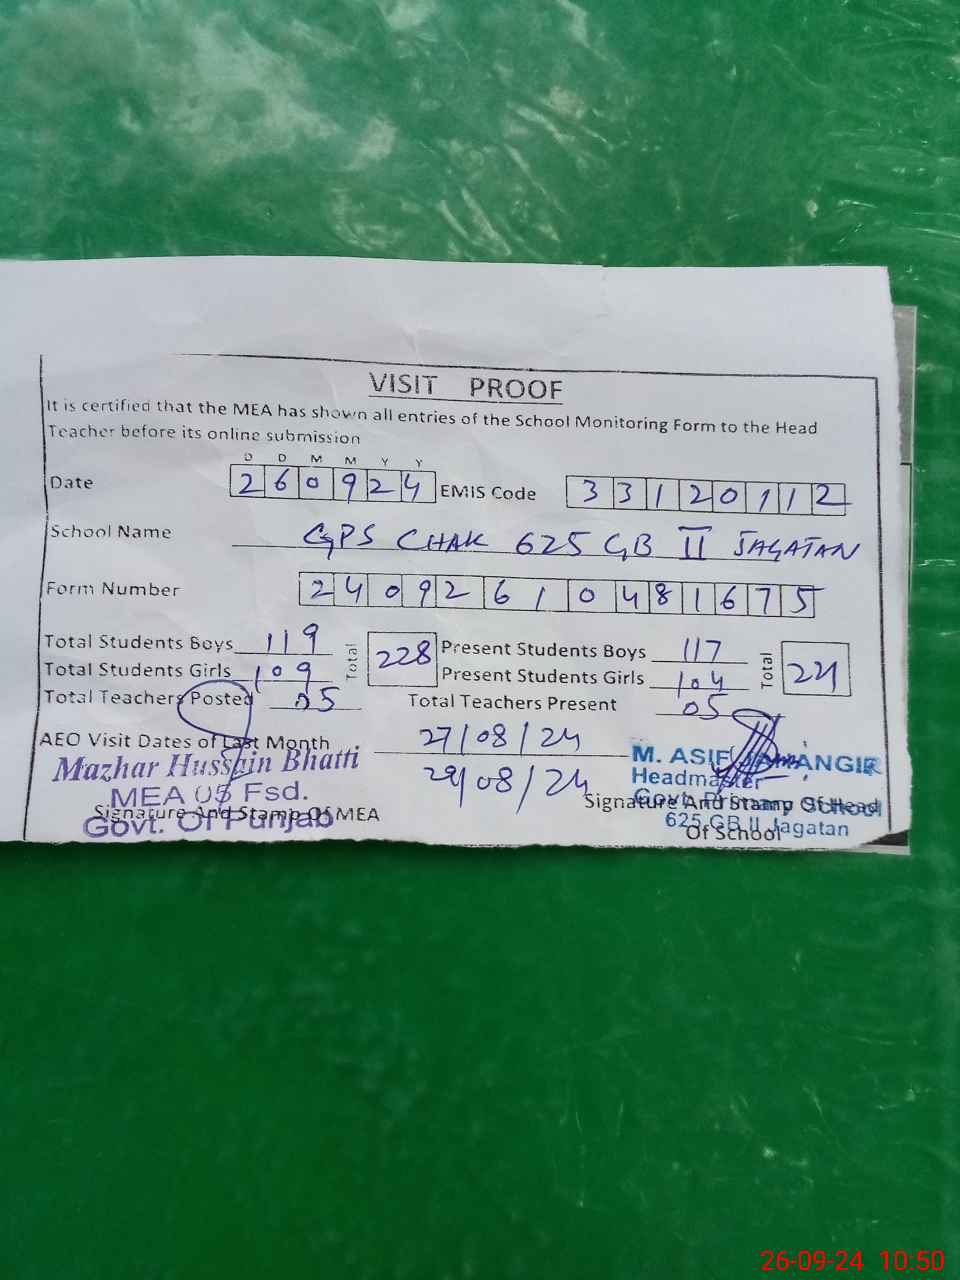 VISIT PROOF
It is certified that the MEA has shown all entries of the School Monitoring Form to the Head
Teacher before its online submission
D D M M Y Y
Date 2 6 0 9 2 4 EMIS Code 3 3 1 2 0 1 1 2
School Name GPS CHAK 625 GB II JAGATAN
Form Number 2 4 0 9 2 6 1 0 4 8 1 6 7 5
Total Students Boys 119 Total 228 Present Students Boys 117 Total 221
Total Students Girls 109 Present Students Girls 104
Total Teachers Posted 05 Total Teachers Present 05
AEO Visit Dates of Last Month 27/08/24
29/08/24
Mazhar Hussain Bhatti
MEA 05 Fsd.
Govt. Of Punjab
Signature And Stamp Of MEA
M. ASIF JAHANGIR
Headmaster
Govt. Primary School
625 GB II Jagatan
Signature And Stamp Of Head
Of School
26-09-24 10:50